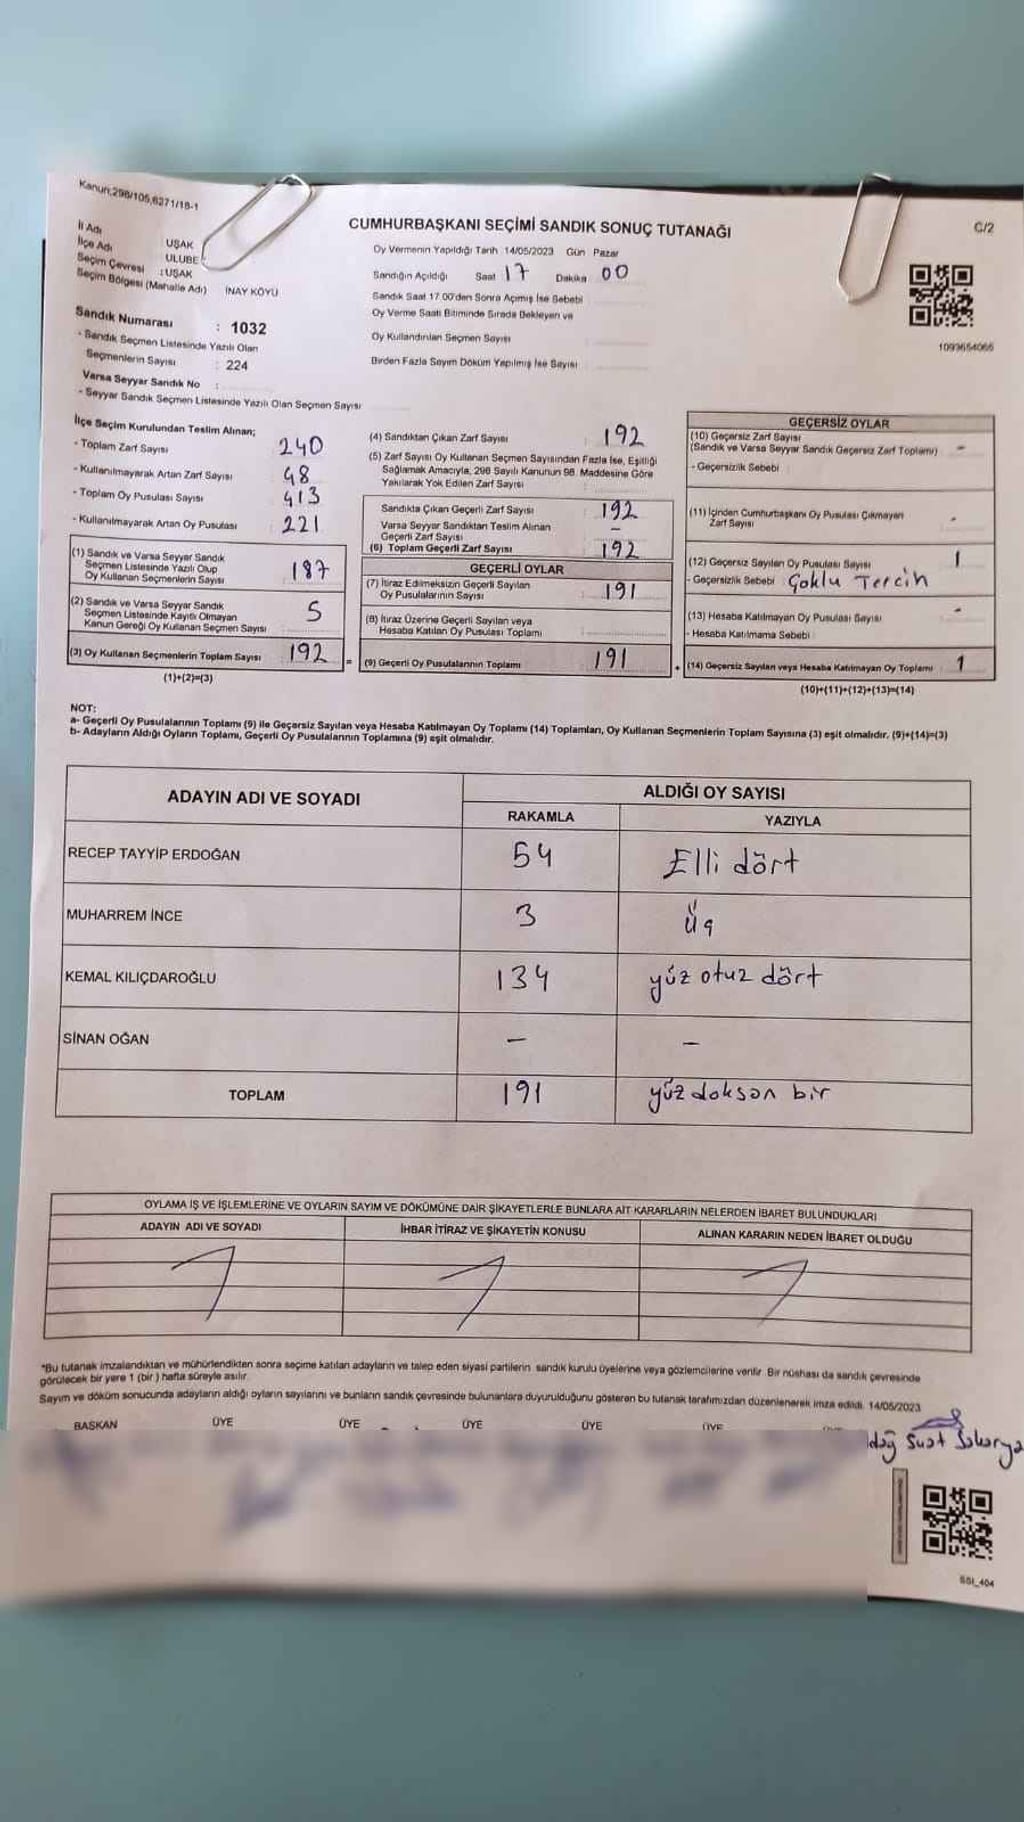 Kanun;298/105,6271/18-1
CUMHURBAŞKANI SEÇİMİ SANDIK SONUÇ TUTANAĞI
C/2
İl Adı UŞAK
İlçe Adı ULUBE
Seçim Çevresi : UŞAK
Seçim Bölgesi (Mahalle Adı) İNAY KÖYÜ
Oy Vermenin Yapıldığı Tarih 14/05/2023 Gün Pazar
Sandığın Açıldığı Saat 17 Dakika 00
Sandık Saat 17.00'den Sonra Açılmış İse Sebebi
Oy Verme Saati Bitiminde Sırada Bekleyen ve
Oy Kullandırılan Seçmen Sayısı
Birden Fazla Sayım Döküm Yapılmış İse Sayısı
1093654065
Sandık Numarası : 1032
- Sandık Seçmen Listesinde Yazılı Olan
Seçmenlerin Sayısı : 224
Varsa Seyyar Sandık No :
- Seyyar Sandık Seçmen Listesinde Yazılı Olan Seçmen Sayısı
İlçe Seçim Kurulundan Teslim Alınan;
- Toplam Zarf Sayısı 240
- Kullanılmayarak Artan Zarf Sayısı 48
- Toplam Oy Pusulası Sayısı 413
- Kullanılmayarak Artan Oy Pusulası 221
(1) Sandık ve Varsa Seyyar Sandık
Seçmen Listesinde Yazılı Olup
Oy Kullanan Seçmenlerin Sayısı 187
(2) Sandık ve Varsa Seyyar Sandık
Seçmen Listesinde Kayıtlı Olmayan
Kanun Gereği Oy Kullanan Seçmen Sayısı 5
(3) Oy Kullanan Seçmenlerin Toplam Sayısı 192
(1)+(2)=(3)
=
(4) Sandıktan Çıkan Zarf Sayısı 192
(5) Zarf Sayısı Oy Kullanan Seçmen Sayısından Fazla İse, Eşitliği
Sağlamak Amacıyla, 298 Sayılı Kanunun 98. Maddesine Göre
Yakılarak Yok Edilen Zarf Sayısı
Sandıkta Çıkan Geçerli Zarf Sayısı : 192
Varsa Seyyar Sandıktan Teslim Alınan
Geçerli Zarf Sayısı -
(6) Toplam Geçerli Zarf Sayısı : 192
GEÇERLİ OYLAR
(7) İtiraz Edilmeksizin Geçerli Sayılan
Oy Pusulalarının Sayısı : 191
(8) İtiraz Üzerine Geçerli Sayılan veya
Hesaba Katılan Oy Pusulası Toplamı
(9) Geçerli Oy Pusulalarının Toplamı 191
+
GEÇERSİZ OYLAR
(10) Geçersiz Zarf Sayısı
(Sandık ve Varsa Seyyar Sandık Geçersiz Zarf Toplamı) -
- Geçersizlik Sebebi :
(11) İçinden Cumhurbaşkanı Oy Pusulası Çıkmayan
Zarf Sayısı -
(12) Geçersiz Sayılan Oy Pusulası Sayısı 1
- Geçersizlik Sebebi Çoklu Tercih
(13) Hesaba Katılmayan Oy Pusulası Sayısı -
- Hesaba Katılmama Sebebi
(14) Geçersiz Sayılan veya Hesaba Katılmayan Oy Toplamı 1
(10)+(11)+(12)+(13)=(14)
NOT:
a- Geçerli Oy Pusulalarının Toplamı (9) ile Geçersiz Sayılan veya Hesaba Katılmayan Oy Toplamı (14) Toplamları, Oy Kullanan Seçmenlerin Toplam Sayısına (3) eşit olmalıdır. (9)+(14)=(3)
b- Adayların Aldığı Oyların Toplamı, Geçerli Oy Pusulalarının Toplamına (9) eşit olmalıdır.
ADAYIN ADI VE SOYADI
ALDIĞI OY SAYISI
RAKAMLA YAZIYLA
RECEP TAYYİP ERDOĞAN 54 Elli dört
MUHARREM İNCE 3 Üç
KEMAL KILIÇDAROĞLU 134 yüz otuz dört
SİNAN OĞAN - -
TOPLAM 191 yüz doksan bir
OYLAMA İŞ VE İŞLEMLERİNE VE OYLARIN SAYIM VE DÖKÜMÜNE DAİR ŞİKAYETLERLE BUNLARA AİT KARARLARIN NELERDEN İBARET BULUNDUKLARI
ADAYIN ADI VE SOYADI İHBAR İTİRAZ VE ŞİKAYETİN KONUSU ALINAN KARARIN NEDEN İBARET OLDUĞU
*Bu tutanak imzalandıktan ve mühürlendikten sonra seçime katılan adayların ve talep eden siyasi partilerin sandık kurulu üyelerine veya gözlemcilerine verilir. Bir nüshası da sandık çevresinde
görülecek bir yere 1 (bir) hafta süreyle asılır.
Sayım ve döküm sonucunda adayların aldığı oyların sayılarını ve bunların sandık çevresinde bulunanlara duyurulduğunu gösteren bu tutanak tarafımızdan düzenlenerek imza edildi. 14/05/2023
BAŞKAN ÜYE ÜYE ÜYE ÜYE ÜYE
dağ Suat Sakarya
SSI_404